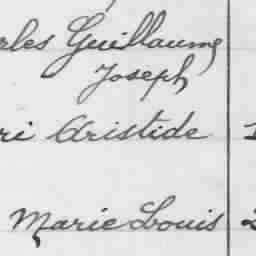 rles Guillaume
Joseph
ri Aristide
Marie Louis